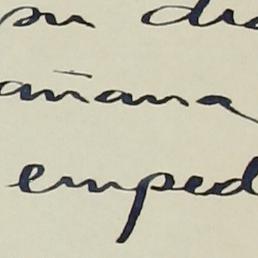 su di
añana
emped